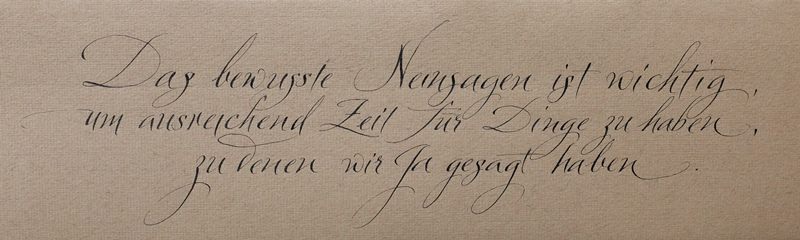 Das bewusste Neinsagen ist wichtig,
um ausreichend Zeit für Dinge zu haben,
zu denen wir Ja gesagt haben.